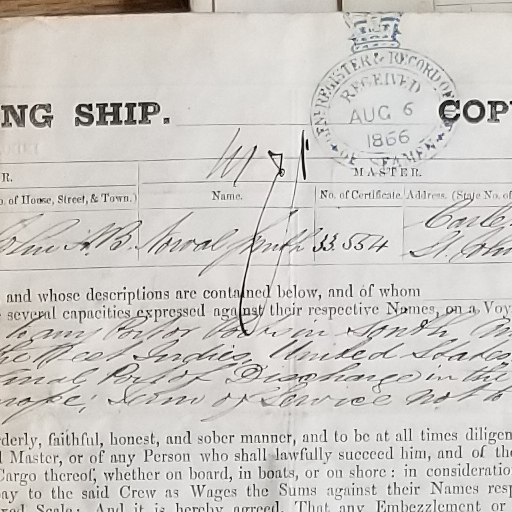 GEN. REGISTER & RECORD OF
RECEIVED
AUG 6
1866
OF SEAMEN
NG SHIP.
COP
R.
MASTER.
of House, Street, & Town.)
Name.
No. of Certificate.
Address. (State No. of
John N.B.
Norval Smith
33.554
St. John
and whose descriptions are contained below, and of whom
several capacities expressed against their respective Names, on a Voy
any Port or Ports in South
the West Indies, United States
Final Port of Discharge in the
Term of Service not to
derly, faithful, honest, and sober manner, and to be at all times diligen
l Master, or of any Person who shall lawfully succeed him, and of the
Cargo thereof, whether on board, in boats, or on shore: in consideratio
ay to the said Crew as Wages the Sums against their Names resp
Scale: And it is hereby agreed, That any Embezzlement or